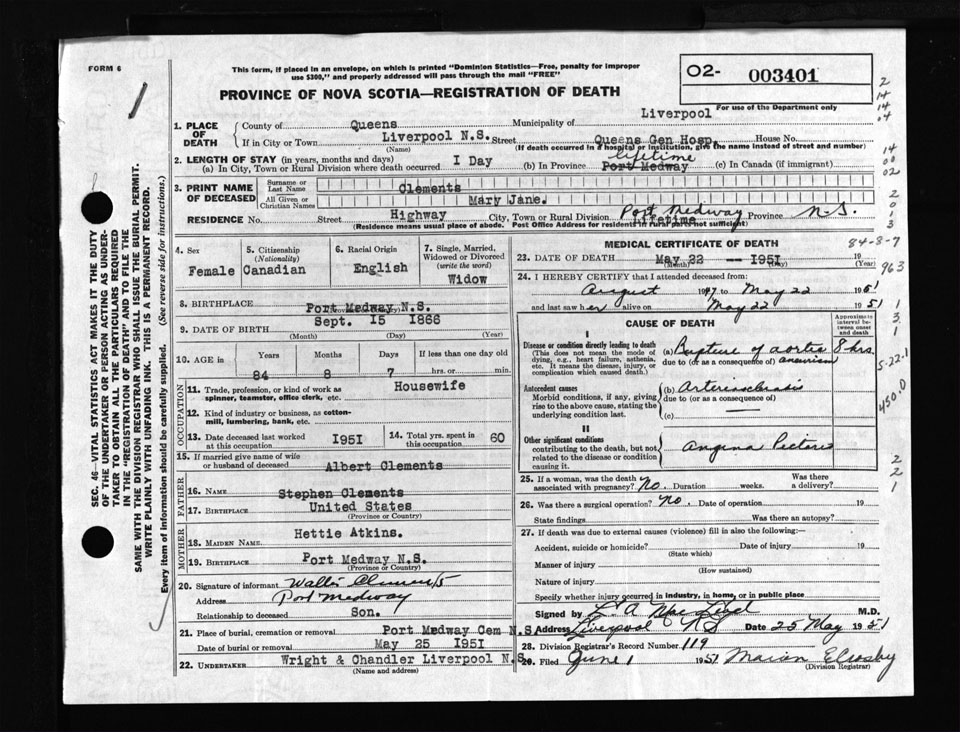 FORM 6
This form, if placed in an envelope, on which is printed "Dominion Statistics—Free, penalty for improper
use $300," and properly addressed will pass through the mail "FREE"
PROVINCE OF NOVA SCOTIA—REGISTRATION OF DEATH
02- 003401
For use of the Department only
1. PLACE OF DEATH
County of Queens Municipality of Liverpool
If in City or Town Liverpool N.S. Street Queens Gen Hosp. House No.
(Name) (If death occurred in a hospital or institution, give the name instead of street and number)
2. LENGTH OF STAY (in years, months and days) lifetime
(a) In City, Town or Rural Division where death occurred I Day (b) In Province Port Medway (c) In Canada (if immigrant)
3. PRINT NAME OF DECEASED
Surname or Last Name Clements
All Given or Christian Names Mary Jane.
RESIDENCE No. Street Highway City, Town or Rural Division Port Medway Province N.S.
lifetime
(Residence means usual place of abode. Post Office Address for residents in rural parts not sufficient)
4. Sex Female
5. Citizenship (Nationality) Canadian
6. Racial Origin English
7. Single, Married, Widowed or Divorced (write the word) Widow
8. BIRTHPLACE Port Medway N.S.
(Province or Country)
9. DATE OF BIRTH Sept. I5 I866
(Month) (Day) (Year)
10. AGE IN Years Months Days If less than one day old
84 8 7 hrs. or min.
OCCUPATION
11. Trade, profession, or kind of work as Housewife
spinner, teamster, office clerk, etc.
12. Kind of industry or business, as cotton-
mill, lumbering, bank, etc.
13. Date deceased last worked at this occupation I95I
14. Total yrs. spent in this occupation 60
15. If married give name of wife or husband of deceased Albert Clements
FATHER
16. NAME Stephen Clements
17. BIRTHPLACE United States
(Province or Country)
MOTHER
18. MAIDEN NAME Hettie Atkins.
19. BIRTHPLACE Port Medway N.S.
(Province or Country)
20. Signature of informant Clements
Address Port Medway
Relationship to deceased Son.
21. Place of burial, cremation or removal Port Medway Cem N.S.
Date of burial or removal May 25 I95I
22. UNDERTAKER Wright & Chandler Liverpool N.S.
(Name and address)
MEDICAL CERTIFICATE OF DEATH
23. DATE OF DEATH May 22 — I95I 19
(Month) (Day) (Year)
24. I HEREBY CERTIFY that I attended deceased from:
August 1947 to May 22 1951
and last saw her alive on May 22 1951
CAUSE OF DEATH
Approximate interval between onset and death
I
Disease or condition directly leading to death
(This does not mean the mode of dying, e.g., heart failure, asthenia, etc. It means the disease, injury, or complication which caused death.)
(a) Rupture of aortic 8 hrs.
due to (or as a consequence of) aneurism
Antecedent causes
Morbid conditions, if any, giving rise to the above cause, stating the underlying condition last.
(b) Arteriosclerosis
due to (or as a consequence of)
(c)
II
Other significant conditions
contributing to the death, but not related to the disease or condition causing it.
Angina Pectoris
25. If a woman, was the death associated with pregnancy? No. Duration weeks. Was there a delivery?
26. Was there a surgical operation? No. Date of operation 19
State findings Was there an autopsy?
27. If death was due to external causes (violence) fill in also the following:—
Accident, suicide or homicide? Date of injury 19
(State which)
Manner of injury
(How sustained)
Nature of injury
Specify whether injury occurred in industry, in home, or in public place
Signed by M.D.
Address Liverpool NS Date 25 May 1951
28. Division Registrar's Record Number 119
29. Filed June 1 1951 Marion
(Division Registrar)
SEC. 46—VITAL STATISTICS ACT MAKES IT THE DUTY
OF THE UNDERTAKER OR PERSON ACTING AS UNDER-
TAKER TO OBTAIN ALL THE PARTICULARS REQUIRED
IN THE "REGISTRATION OF DEATH" AND TO FILE THE
SAME WITH THE DIVISION REGISTRAR WHO SHALL ISSUE THE BURIAL PERMIT.
WRITE PLAINLY WITH UNFADING INK. THIS IS A PERMANENT RECORD.
Every item of information should be carefully supplied. (See reverse side for instructions.)
2
14
14
04
14
00
02
2
0
1
3
84-8-7
963
1
3
1
5-22-1
450.0
2
2
1